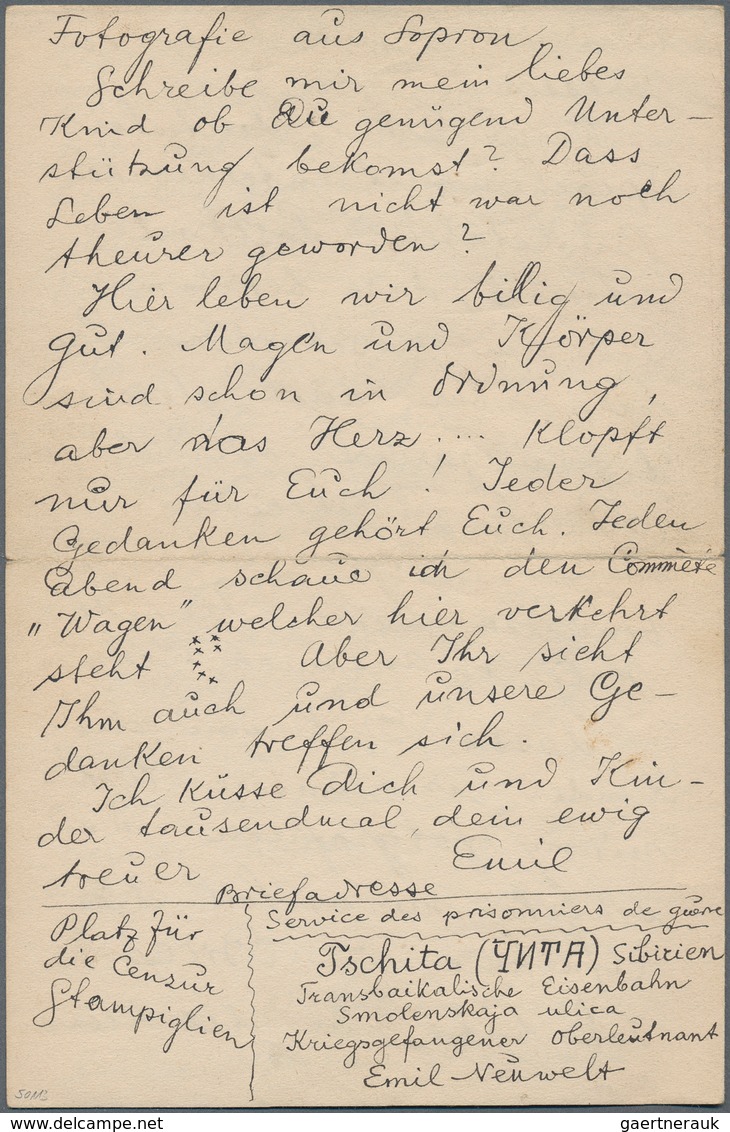 Fotografie aus Sopron
Schreibe mir mein liebes
Kind ob Du genügend Unter-
stützung bekomst? Dass
Leben ist nicht war noch
theurer geworden?
Hier leben wir billig und
gut. Magen und Körper
sind schon in Ordnung,
aber das Herz.... klopft
nur für Euch! Jeder
Gedanken gehört Euch. Jeden
abend schaue ich den
„Wagen" welcher hier verkehrt
steht Aber Ihr sieht
Ihm auch und unsere Ge-
danken treffen sich.
Ich küsse Dich und Kin-
der tausendmal, dein ewig
treuer Emil
Briefadresse
Platz für
die Censur
Stampiglien
Service des prisonniers de guerre
Tschita (ЧИТА) Sibirien
Transbaikalische Eisenbahn
Smolenskaja ulica
Kriegsgefangener Oberleutnant
Emil Neuwelt
gaertnerauk